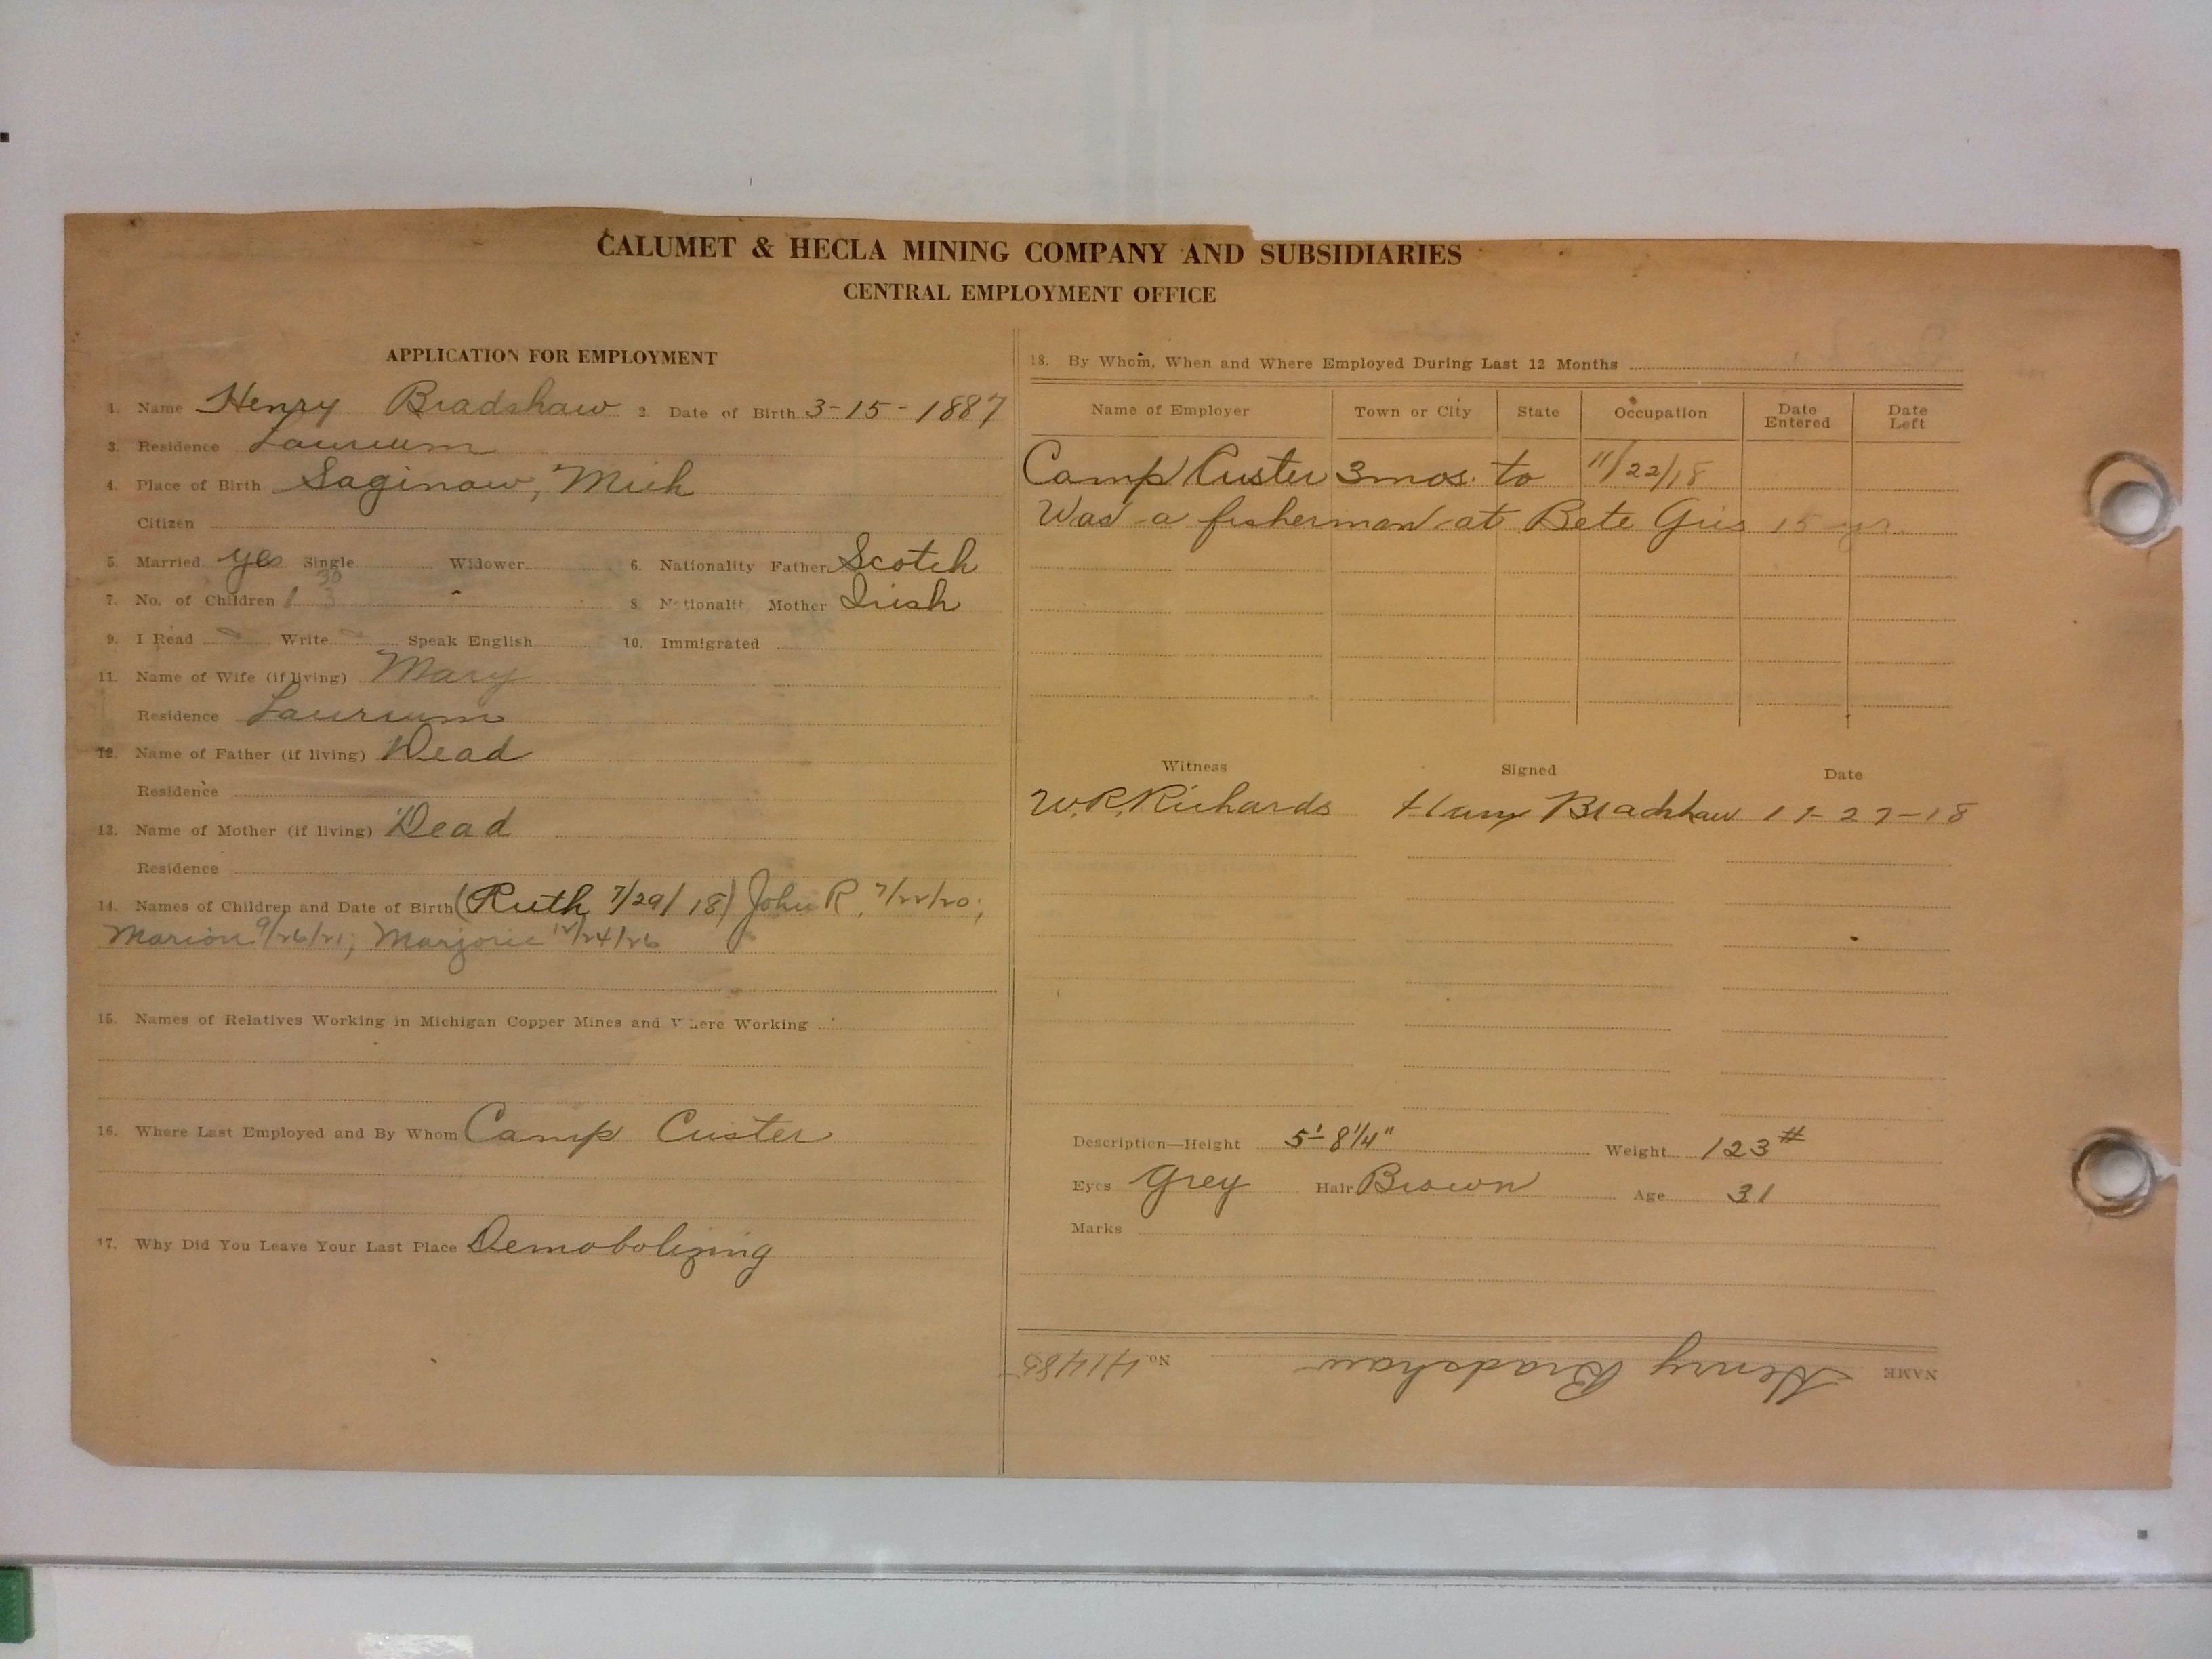 CALUMET & HECLA MINING COMPANY AND SUBSIDIARIES
CENTRAL EMPLOYMENT OFFICE
APPLICATION FOR EMPLOYMENT
1. Name Henry Bradshaw 2. Date of Birth 3-15-1887
3. Residence Laurium
4. Place of Birth Saginaw, Mich
Citizen
5. Married yes Single Widower 6. Nationality Father Scotch
7. No. of Children 8. Nationality Mother Irish
9. I Read Write Speak English 10. Immigrated
11. Name of Wife (if living) Mary
Residence Laurium
12. Name of Father (if living) Dead
Residence
13. Name of Mother (if living) Dead
Residence
14. Names of Children and Date of Birth (Ruth 7/29/18) John R, 7/22/20;
Marion 9/26/21; Marjorie 12/24/26
15. Names of Relatives Working in Michigan Copper Mines and Where Working
16. Where Last Employed and By Whom Camp Custer
17. Why Did You Leave Your Last Place Demobolizing
18. By Whom, When and Where Employed During Last 12 Months
Name of Employer Town or City State Occupation Date Entered Date Left
Camp Custer 3 mos. to 11/22/18
Was a fisherman at Bete Gris 15 yr.
Witness Signed Date
W.R. Richards Henry Bradshaw 11-27-18
Description—Height 5'-8 1/4" Weight 123#
Eyes Grey Hair Brown Age 31
Marks
NAME Henry Bradshaw No. 41485